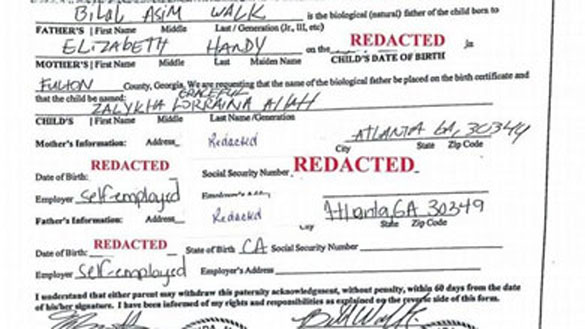 BILAL ASIM WALK is the biological (natural) father of the child born to
FATHER'S | First Name Middle Last / Generation (Jr., III, etc)
ELIZABETH HANDY on the REDACTED in
MOTHER'S | First Name Middle Last Maiden Name CHILD'S DATE OF BIRTH
FULTON County, Georgia. We are requesting that the name of the biological father be placed on the birth certificate and
that the child be named: GRACEFUL
ZALYKHA LORRAINA ALLAH
CHILD'S | First Name Middle Last Name /Generation
Mother's Information: Address Redacted ATLANTA GA, 30349
City State Zip Code
Date of Birth: REDACTED Social Security Number REDACTED
Employer self-employed Employer's
Father's Information: Address Redacted Atlanta, GA 30349
City State Zip Code
Date of Birth: REDACTED State of Birth CA Social Security Number
Employer self-employed Employer's Address
I understand that either parent may withdraw this paternity acknowledgment, without penalty, within 60 days from the date
of his/her signature. I have been informed of my rights and responsibilities as explained on the reverse side of this form.